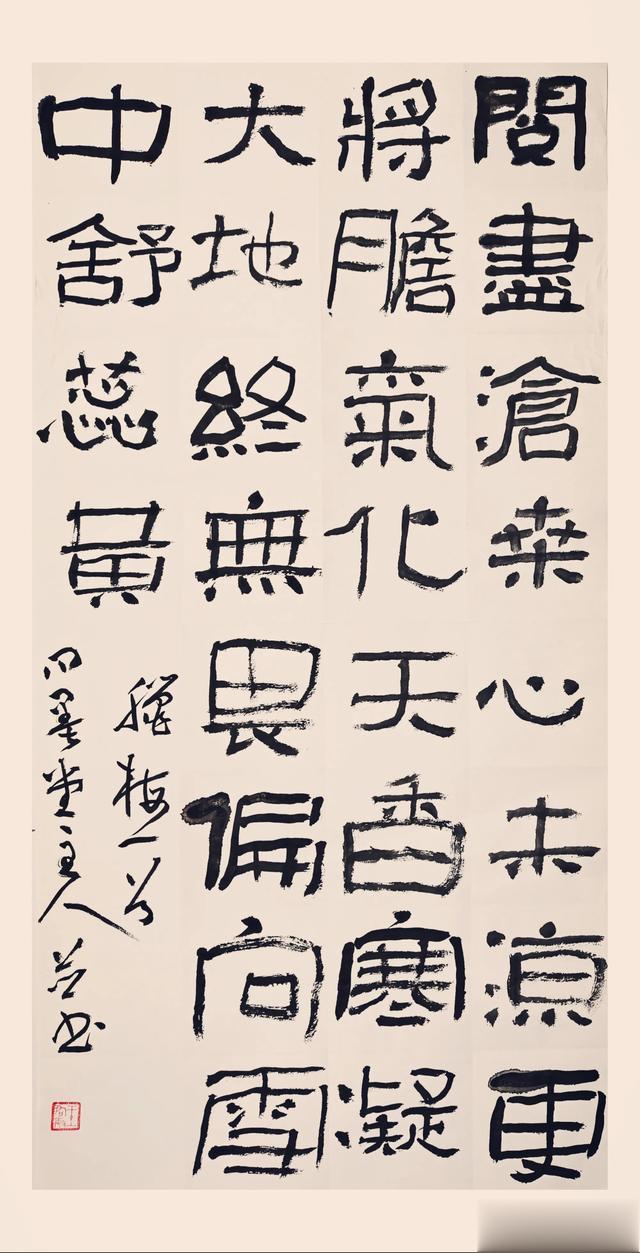 閱盡滄桑心未涼更
將膽氣化天香寒凝
大地終無畏偏向雪
中舒蕊黄
臘梅一首
墨堂主人并书